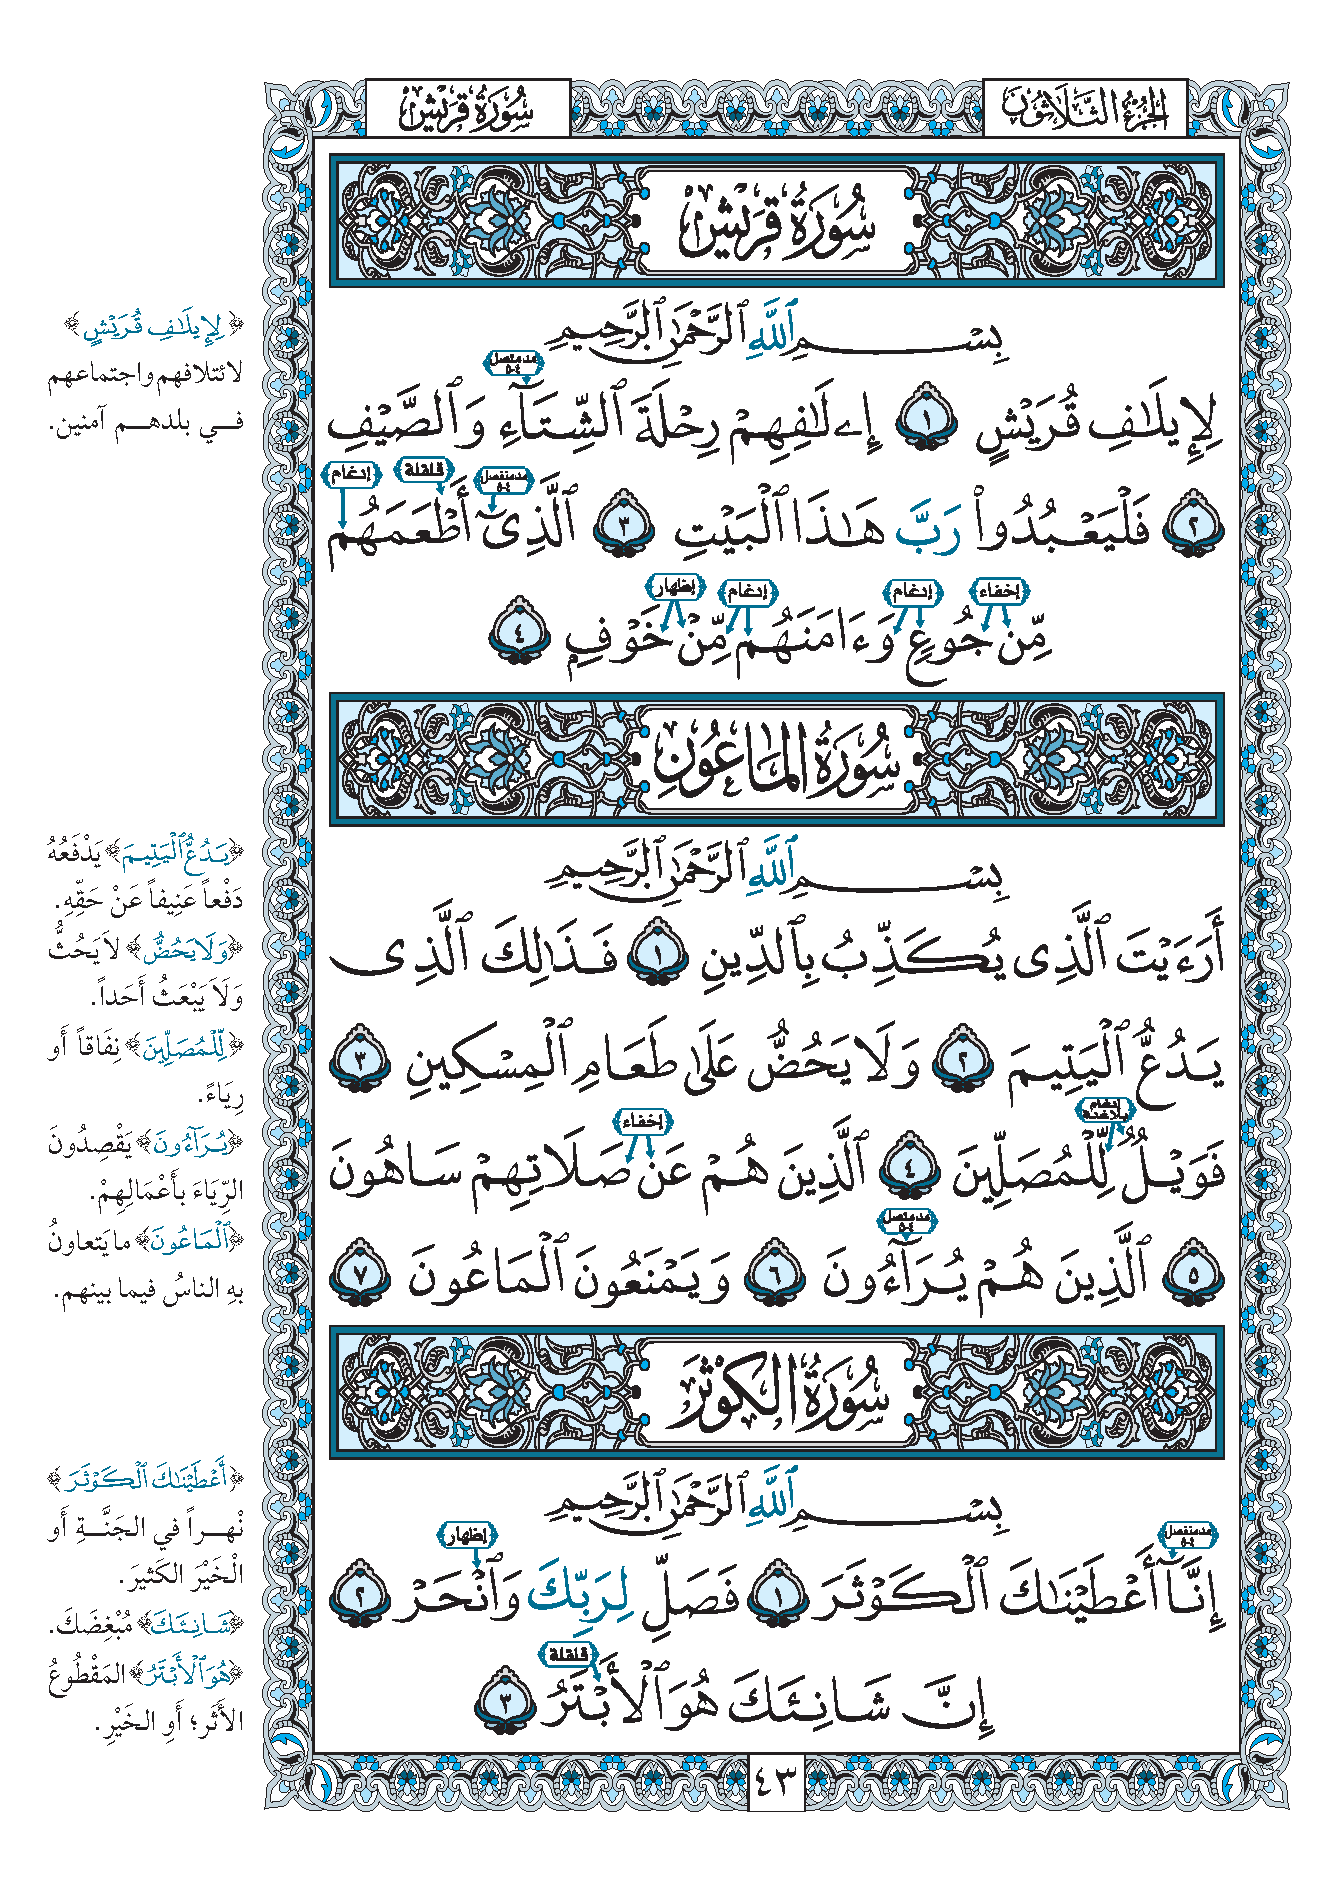 الجُزْءُ الثَّلَاثُونَ
سُورَةُ قُرَيْشٍ
سُورَةُ قُرَيْشٍ
بِسْمِ ٱللَّهِ ٱلرَّحْمَٰنِ ٱلرَّحِيمِ
مد متصل ٤-٥
لِإِيلَٰفِ قُرَيْشٍ ١ إِۦلَٰفِهِمْ رِحْلَةَ ٱلشِّتَآءِ وَٱلصَّيْفِ
مد منفصل ٤-٥
قلقلة
إدغام
٢ فَلْيَعْبُدُوا۟ رَبَّ هَٰذَا ٱلْبَيْتِ ٣ ٱلَّذِىٓ أَطْعَمَهُم
إخفاء
إدغام
إدغام
إظهار
مِّن جُوعٍ وَءَامَنَهُم مِّنْ خَوْفٍۭ ٤
سُورَةُ المَاعُونِ
بِسْمِ ٱللَّهِ ٱلرَّحْمَٰنِ ٱلرَّحِيمِ
أَرَءَيْتَ ٱلَّذِى يُكَذِّبُ بِٱلدِّينِ ١ فَذَٰلِكَ ٱلَّذِى
يَدُعُّ ٱلْيَتِيمَ ٢ وَلَا يَحُضُّ عَلَىٰ طَعَامِ ٱلْمِسْكِينِ ٣
إدغام بلا غنة
إخفاء
فَوَيْلٌ لِّلْمُصَلِّينَ ٤ ٱلَّذِينَ هُمْ عَن صَلَاتِهِمْ سَاهُونَ
مد متصل ٤-٥
٥ ٱلَّذِينَ هُمْ يُرَآءُونَ ٦ وَيَمْنَعُونَ ٱلْمَاعُونَ ٧
سُورَةُ الكَوْثَرِ
بِسْمِ ٱللَّهِ ٱلرَّحْمَٰنِ ٱلرَّحِيمِ
مد منفصل ٤-٥
إظهار
إِنَّآ أَعْطَيْنَٰكَ ٱلْكَوْثَرَ ١ فَصَلِّ لِرَبِّكَ وَٱنْحَرْ ٢
قلقلة
إِنَّ شَانِئَكَ هُوَ ٱلْأَبْتَرُ ٣
٤٣
﴿لِإِيلَٰفِ قُرَيْشٍ﴾
لائتلافهم واجتماعهم
فـي بلدهـم آمنين.
﴿يَدُعُّ ٱلْيَتِيمَ﴾ يَدْفَعُهُ
دَفْعاً عَنِيفاً عَنْ حَقِّهِ.
﴿وَلَا يَحُضُّ﴾ لاَ يَحُثُّ
وَلاَ يَبْعَثُ أَحَداً.
﴿لِّلْمُصَلِّينَ﴾ نِفَاقاً أَو
رِيَاءً.
﴿يُرَآءُونَ﴾ يَقْصِدُونَ
الرِّيَاءَ بأَعْمَالِهِمْ.
﴿ٱلْمَاعُونَ﴾ ما يَتعاونُ
بهِ الناسُ فيما بينهم.
﴿أَعْطَيْنَٰكَ ٱلْكَوْثَرَ﴾
نْهـراً في الجَنَّـةِ أَو
الْخَيْرَ الكَثيرَ.
﴿شَانِئَكَ﴾ مُبْغِضَكَ.
﴿هُوَ ٱلْأَبْتَرُ﴾ المَقْطُوعُ
الأَثَرِ؛ أَوِ الخَيْرِ.